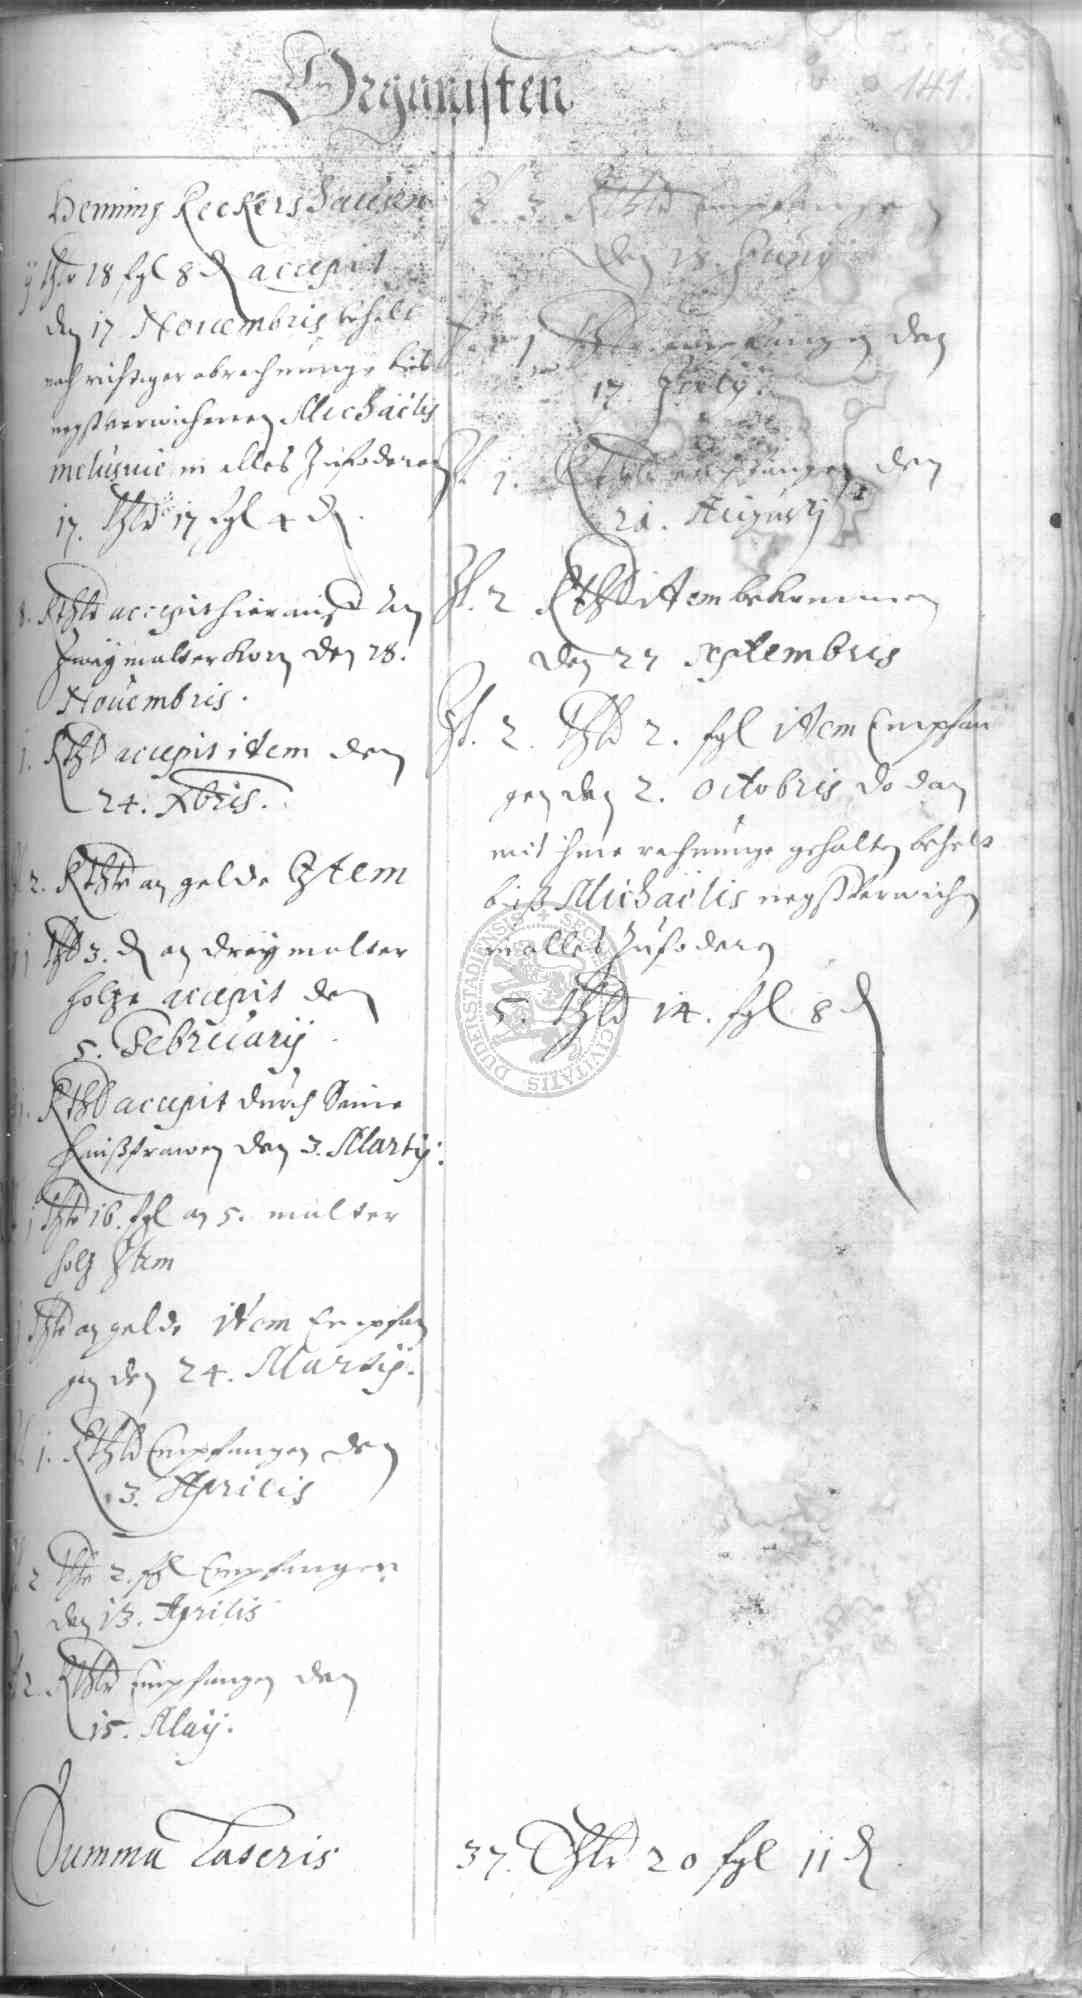 Organisten
141.
Henning Reckershausen
thlr 18 fgl 8 d accepit
den 17 Novembris behelt
nach richtiger abrechnunge bis
negstverwichenen Michaëlis
inclusive in alles Zufoderen
17. thlr 17 fgl 4 d
Rthlr accepit hierauf an
zweÿ malter Korn den 28.
Novembris.
1. Rthlr accepit item den
24. Xbris.
2. Rthlr an gelde Item
thlr 3. d an dreÿ malter
holtze accepit den
5. Februarij
Rthlr accepit durch Seine
haußfrawen den 3. Martij:
j thlr 16. fgl an 5. malter
holtz Item
thlr an gelde item Empfan
gen den 24. Martij:
1. Rthlr Empfangen den
3. Aprilis
2 thlr 2. fgl Empfangen
den 13. Aprilis
2. Rthlr Empfangen den
15. Maij.
Zt. 3. Rthlr empfangen
den 18. Junij
thlr empfangen den
17. Julij.
Zt. 1. Rthlr empfangen den
21. Augusti
Zt. 2 Rthlr item bekommen
den 27 Septembris
Zt. 2. thlr 2. fgl item Empfan
gen den 2. Octobris do dan
mit ihme rechnunge gehalten behelt
biß Michaëlis negstverwichen
in alles Zufoderen
5. thlr 14. fgl 8 d
DUDERSTADIENSIS CIVITATIS
Summa lateris 37. thlr 20 fgl 11 d